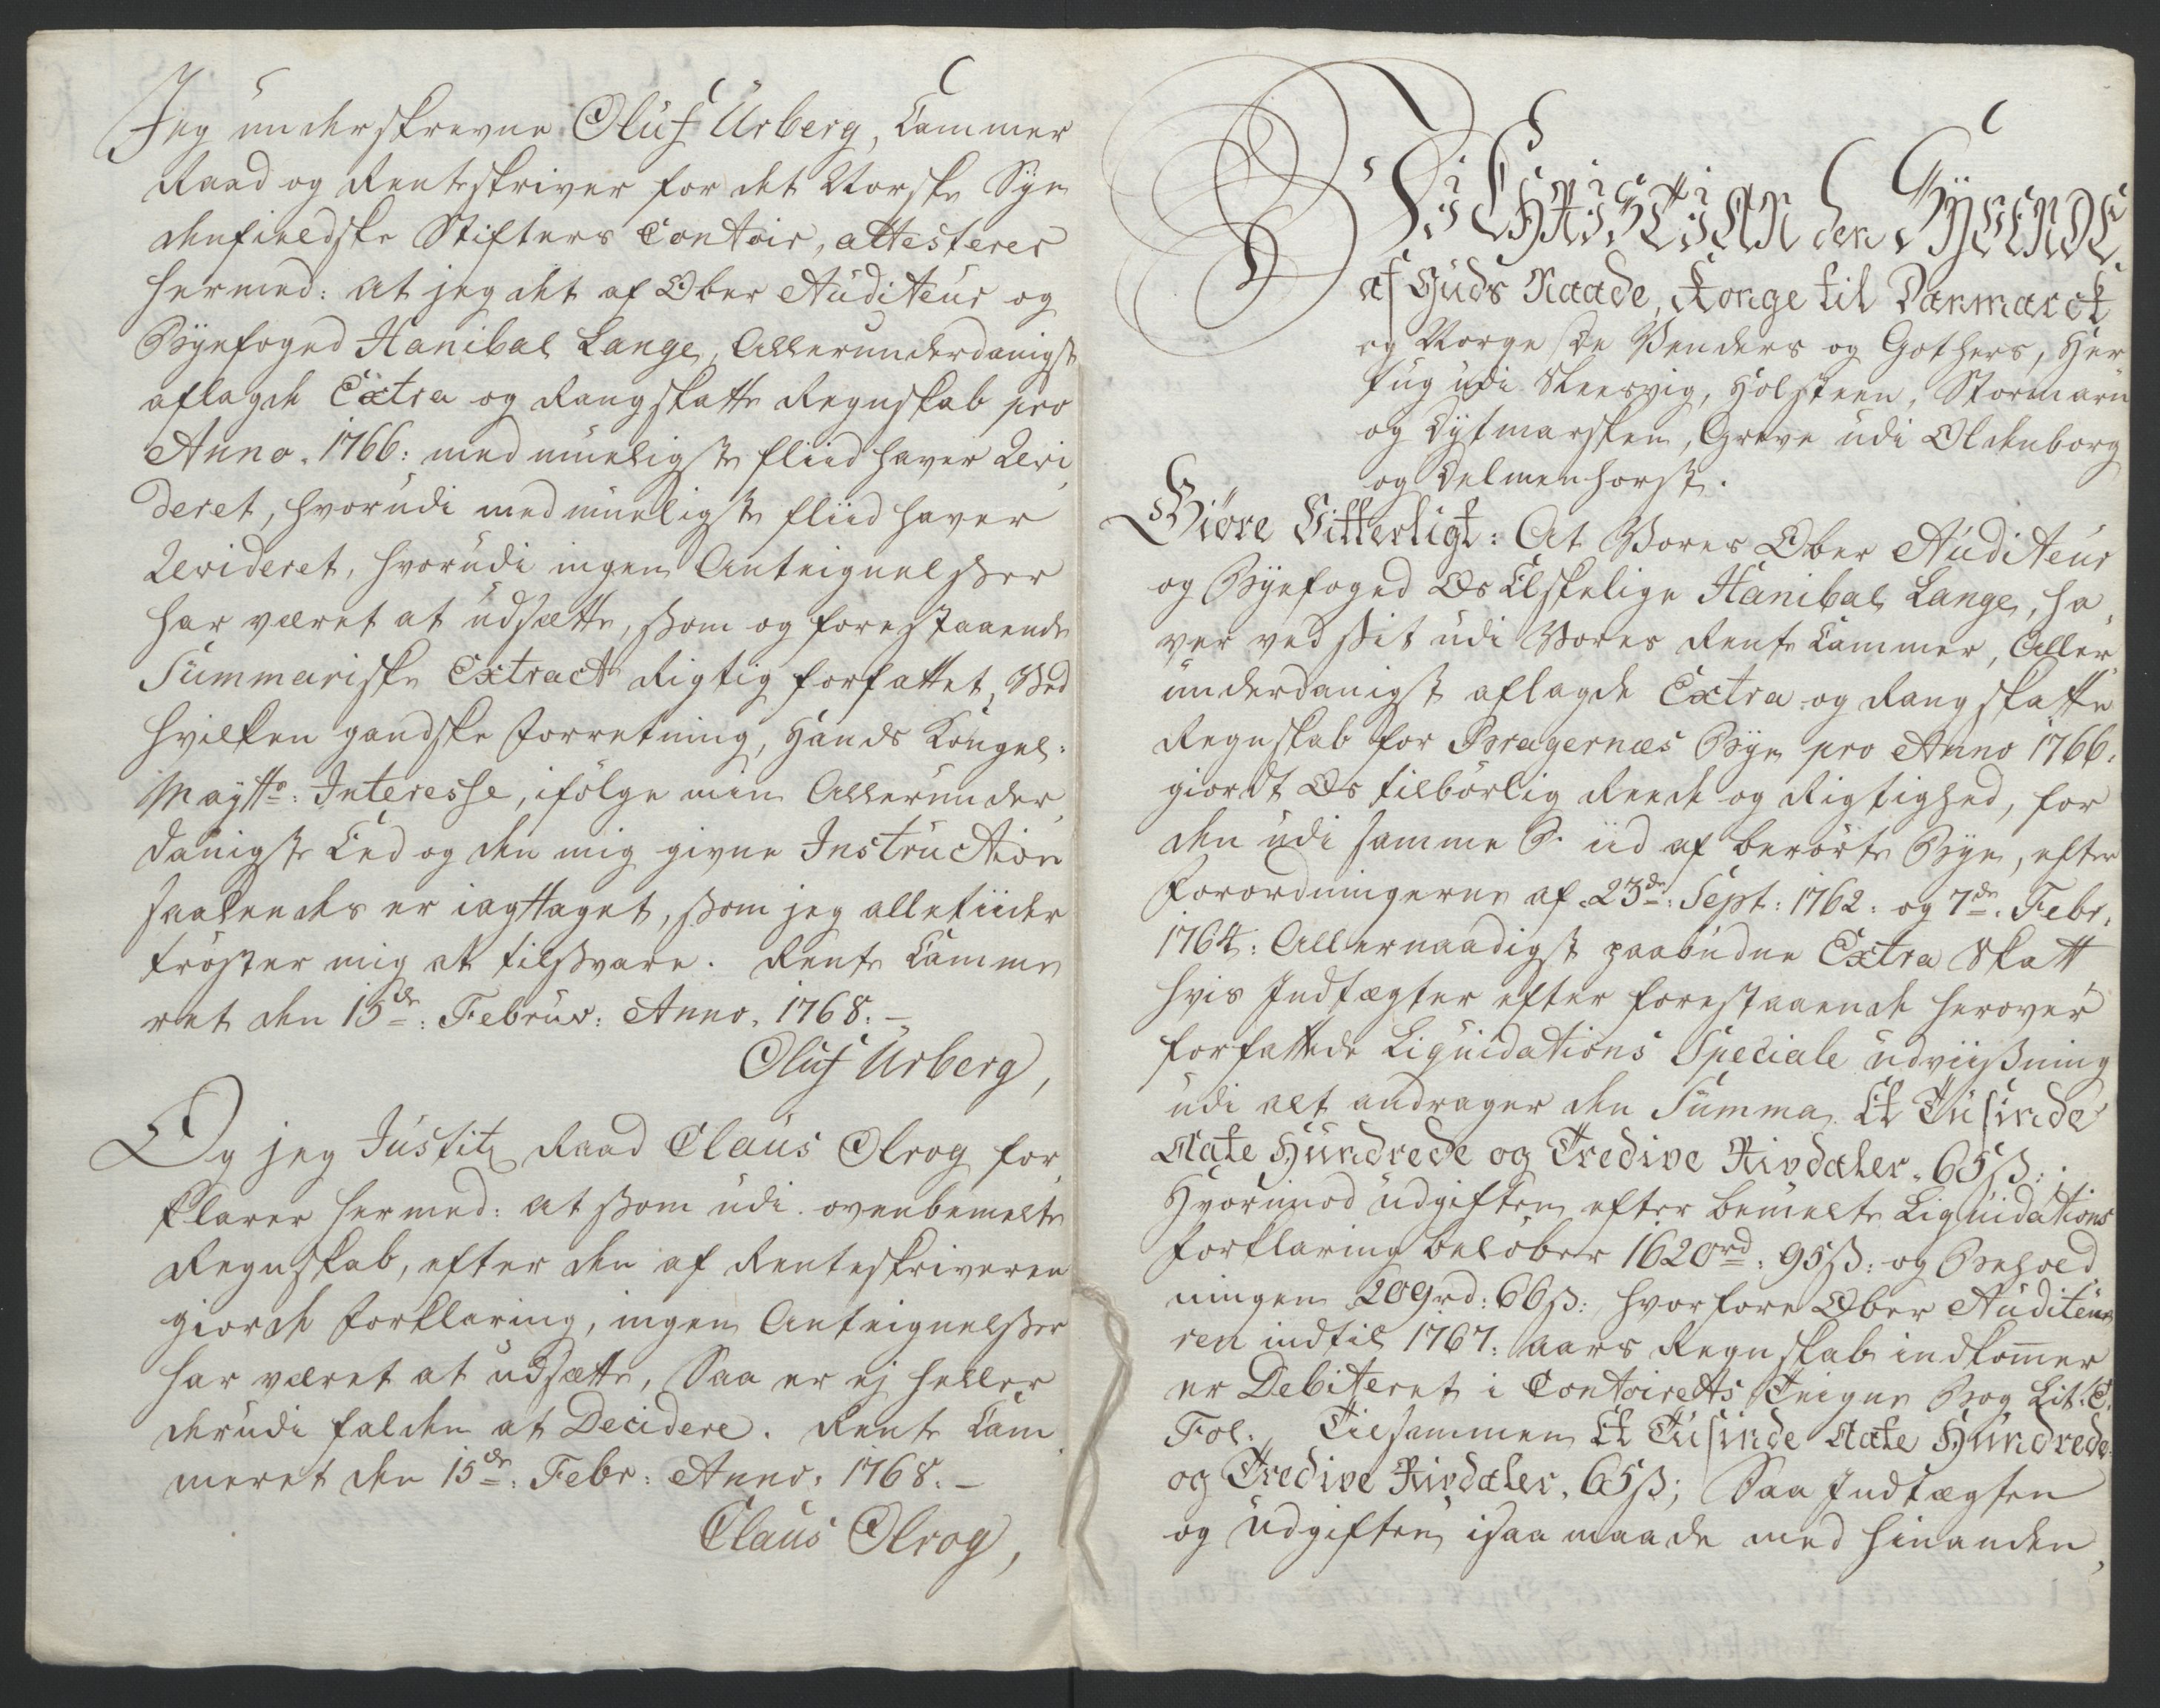 Jeg underskrevne Oluf Urberg, Cammer
Raad og Renteskriver for det Norske Syn
denfieldske Stifters Contoir, attesterer
hermed: at jeg det af Ober Auditeur og
Byefoged Hanibal Lange, Allerunderdanigst
aflagde Extra og Rangskatte Regnskab pro
Anno 1766: med mueligste fliid haver Revi,
deret, hvorudi med mueligste fliid haver
Revideret, hvorudi ingen Anteignelsser
har været at udsætte, ssom og forestaaende
Summariske Extract Rigtig forfattet, Ved
hvilken gandske Forretning, Hands Kongel:
Maytts: Interesse, ifölge min Allerunder,
danigste Eed og den mig givne Instruction
saaledes er iagttaget, ssom jeg alletiider
tröster mig at tilssvare. Rente Camme
ret den 15de: Februar: Anno 1768.—
Oluf Urberg,
Og jeg Justitz Raad Claus Olrog for,
klarer hermed: at ssom udi ovenbemelte
Regnskab, efter den af Renteskriveren
giorde Forklaring, ingen Anteignelsser
har været at udsætte, Saa er ej heller
derudi falden at Decidere. Rente Cam
meret den 15de: Febr: Anno 1768.—
Claus Olrog,
Vi CHRISTIAN den SYVENDE
af Guds Naade, Konge til Danmarck
og Norge de Venders og Gothers, Her
tug udi Slesvig, Holsteen, Stormarn
og Dytmarsken, Greve udi Oldenborg
og Delmenhorst.
Giöre Vitterligt: At Vores Ober Auditeur
og Byefoged Os Elskelige Hanibal Lange, ha,
ver ved sit udi Vores Rente Cammer, Aller,
underdanigst aflagde Extra og Rang skatte
Regnskab for Bragernæs Bye pro Anno 1766.
giordt Os tilbörlig Reede og Rigtighed, for
den udi samme Tiid af berörte Bye, efter
Forordningerne af 23de: Sept: 1762: og 7de: Febr.
1764: Allernaadigst paabudne Extra Skatt
hvis Indtægter efter forestaaende herover
forfattede Liquidations Speciale udviissning
udi alt andrager den Summa Et Tusinde
Aate Hundrede og Tredive Rixdaler 65 ß:
Hvorimod Udgiften efter bemelte Liquidations
Forklaring belöber 1620 rd: 95 ß: og Behold
ningen 209 rd: 66 ß: hvorfore Ober Auditeu
ren indtil 1767: aars Regnskab indkom̄er
er Debiteret i Contoiretts Teigne Bog Lit: C.
Fol: Tilsammen Et Tusinde Aate Hundrede
og Tredive Rixdaler 65 ß; Saa Indtægten
og Udgiften isaa maade med hinanden,